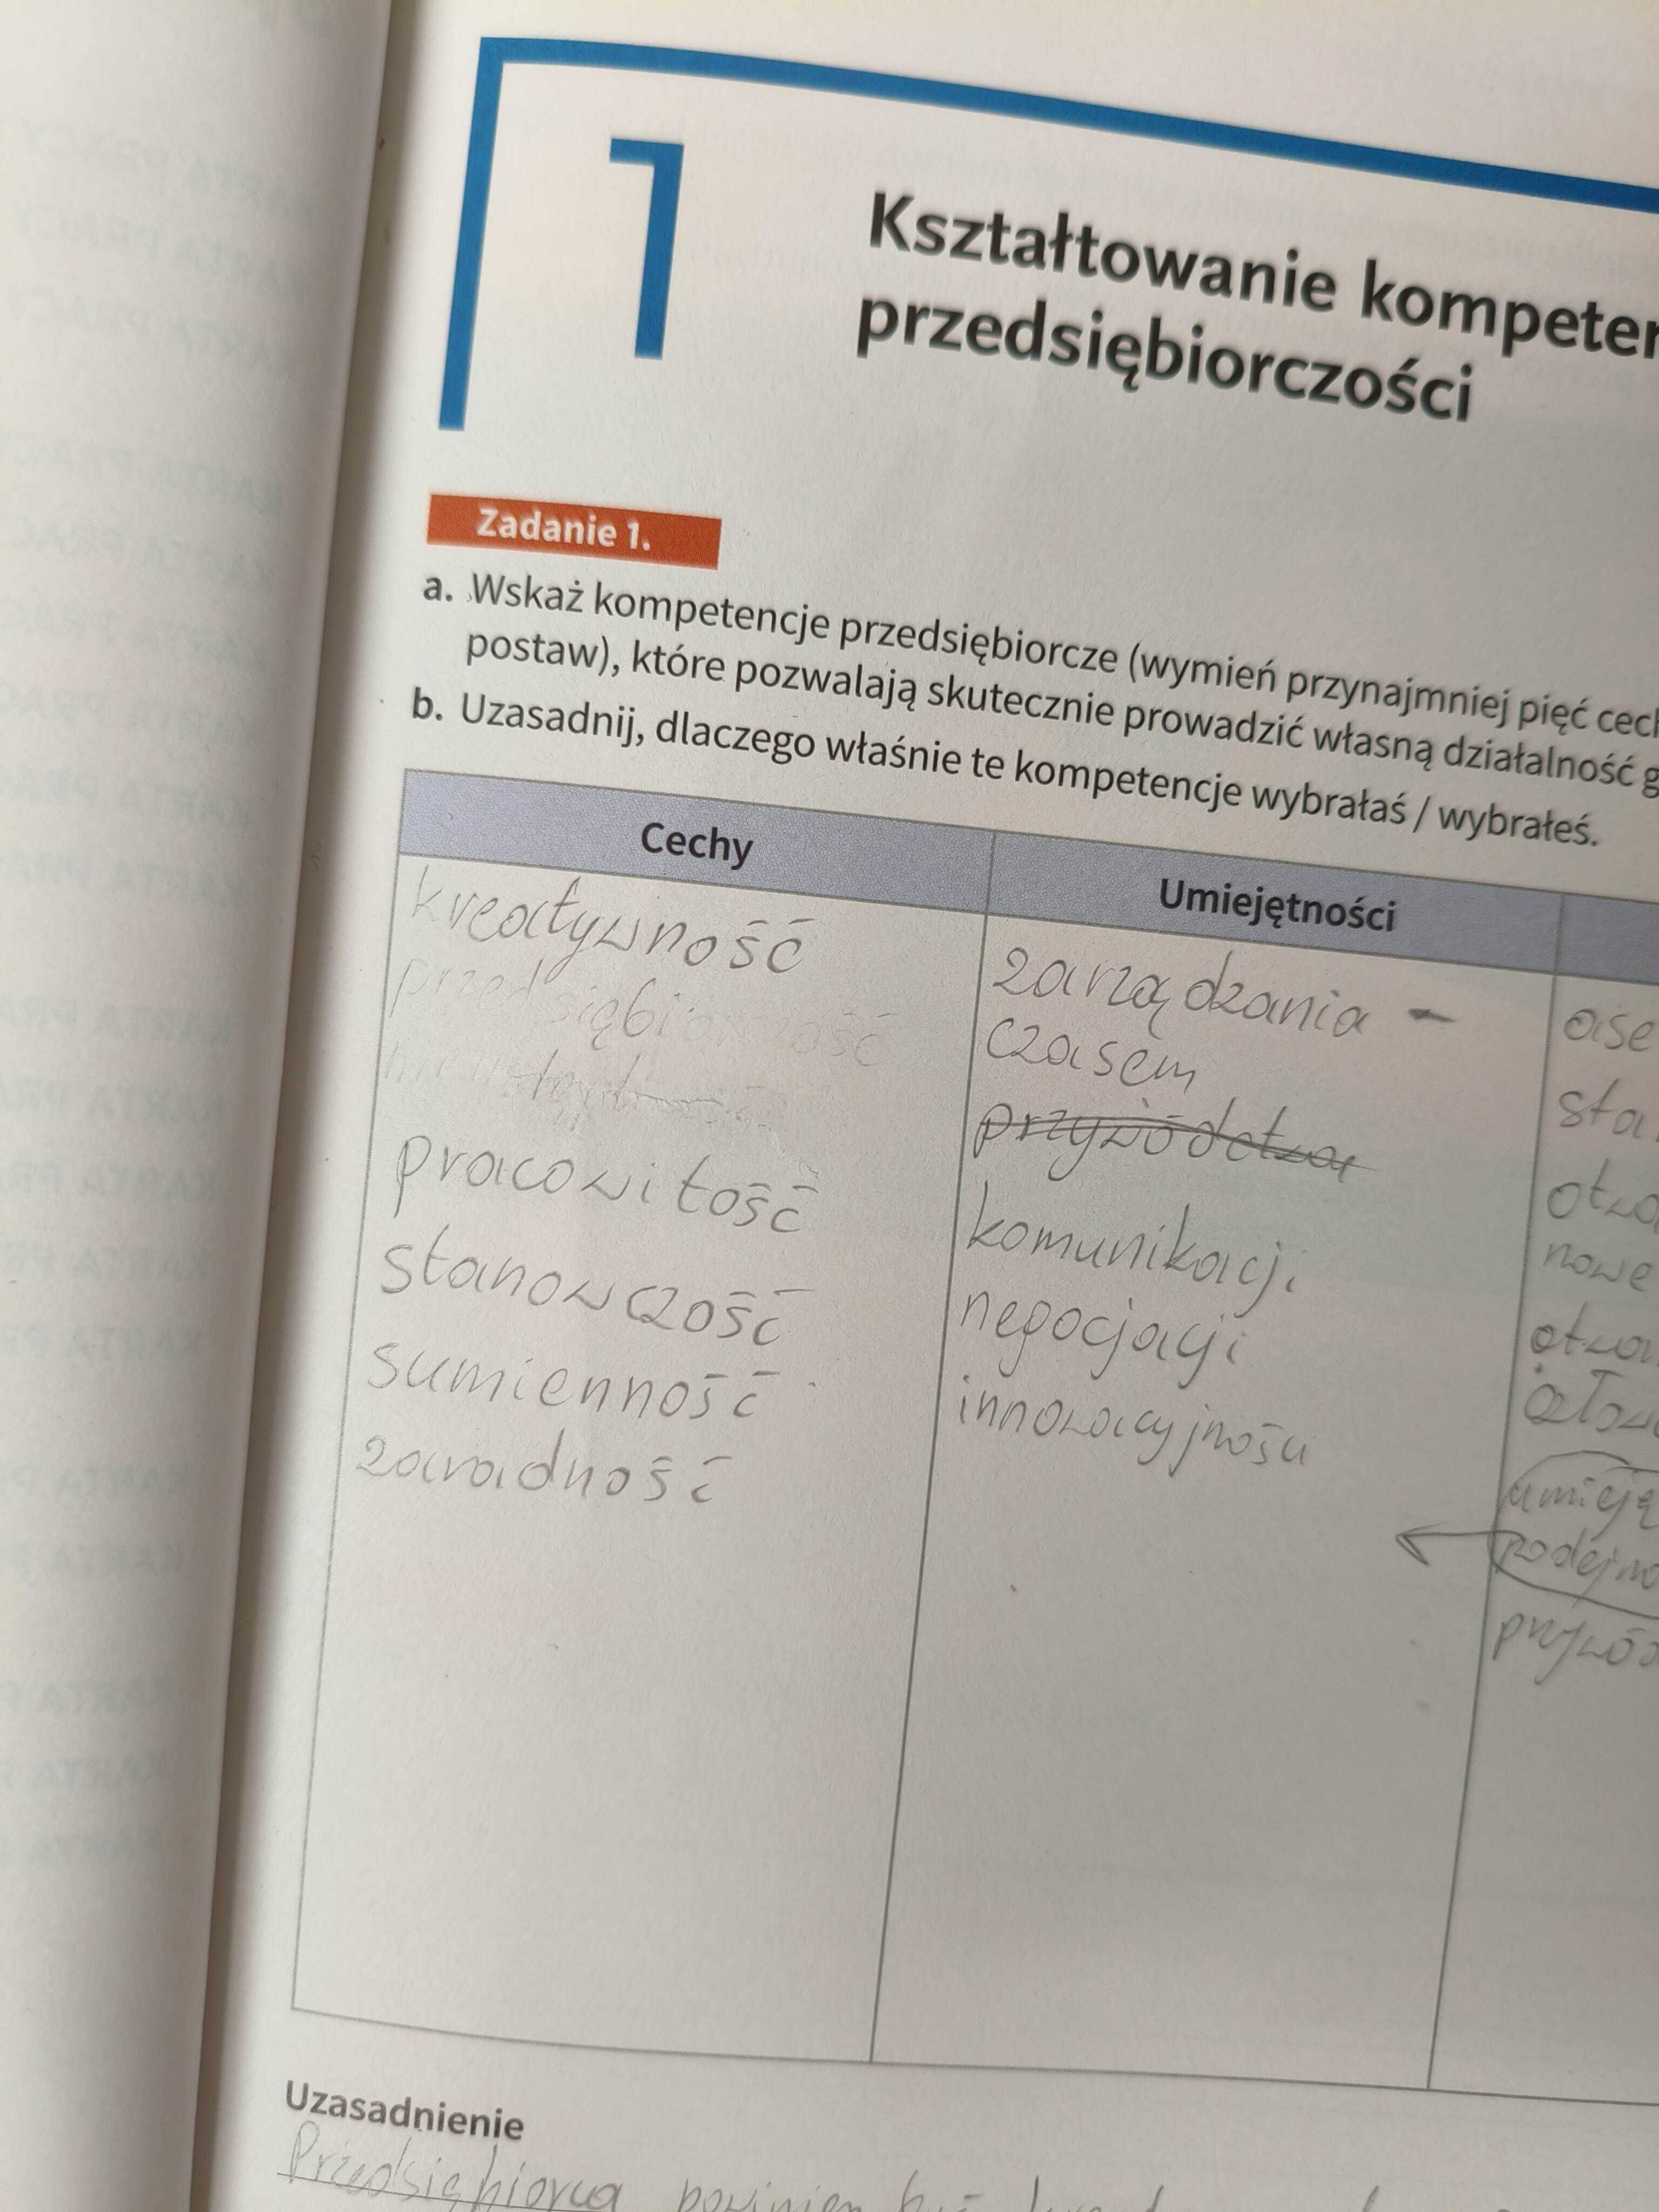 1
Kształtowanie kompeten
przedsiębiorczości
Zadanie 1.
a. Wskaż kompetencje przedsiębiorcze (wymień przynajmniej pięć cech
postaw), które pozwalają skutecznie prowadzić własną działalność g
b. Uzasadnij, dlaczego właśnie te kompetencje wybrałaś / wybrałeś.
Cechy
kreatywność
przedsiębiorczość
pracowitość
stanowczość
sumienność
zaradność
Umiejętności
zarządzania -
czasem
przywódctwa
komunikacji
negocjacji
innowacyjnośu
ase
sta
otwa
nowe
otwa
człow
umieję
podejmo
przywód
Uzasadnienie
Przedsiębiorca powinien być
KARTA PRACY
KARTA PRACY
KARTA PRACY
KARTA PRAC
KARTA PRAC